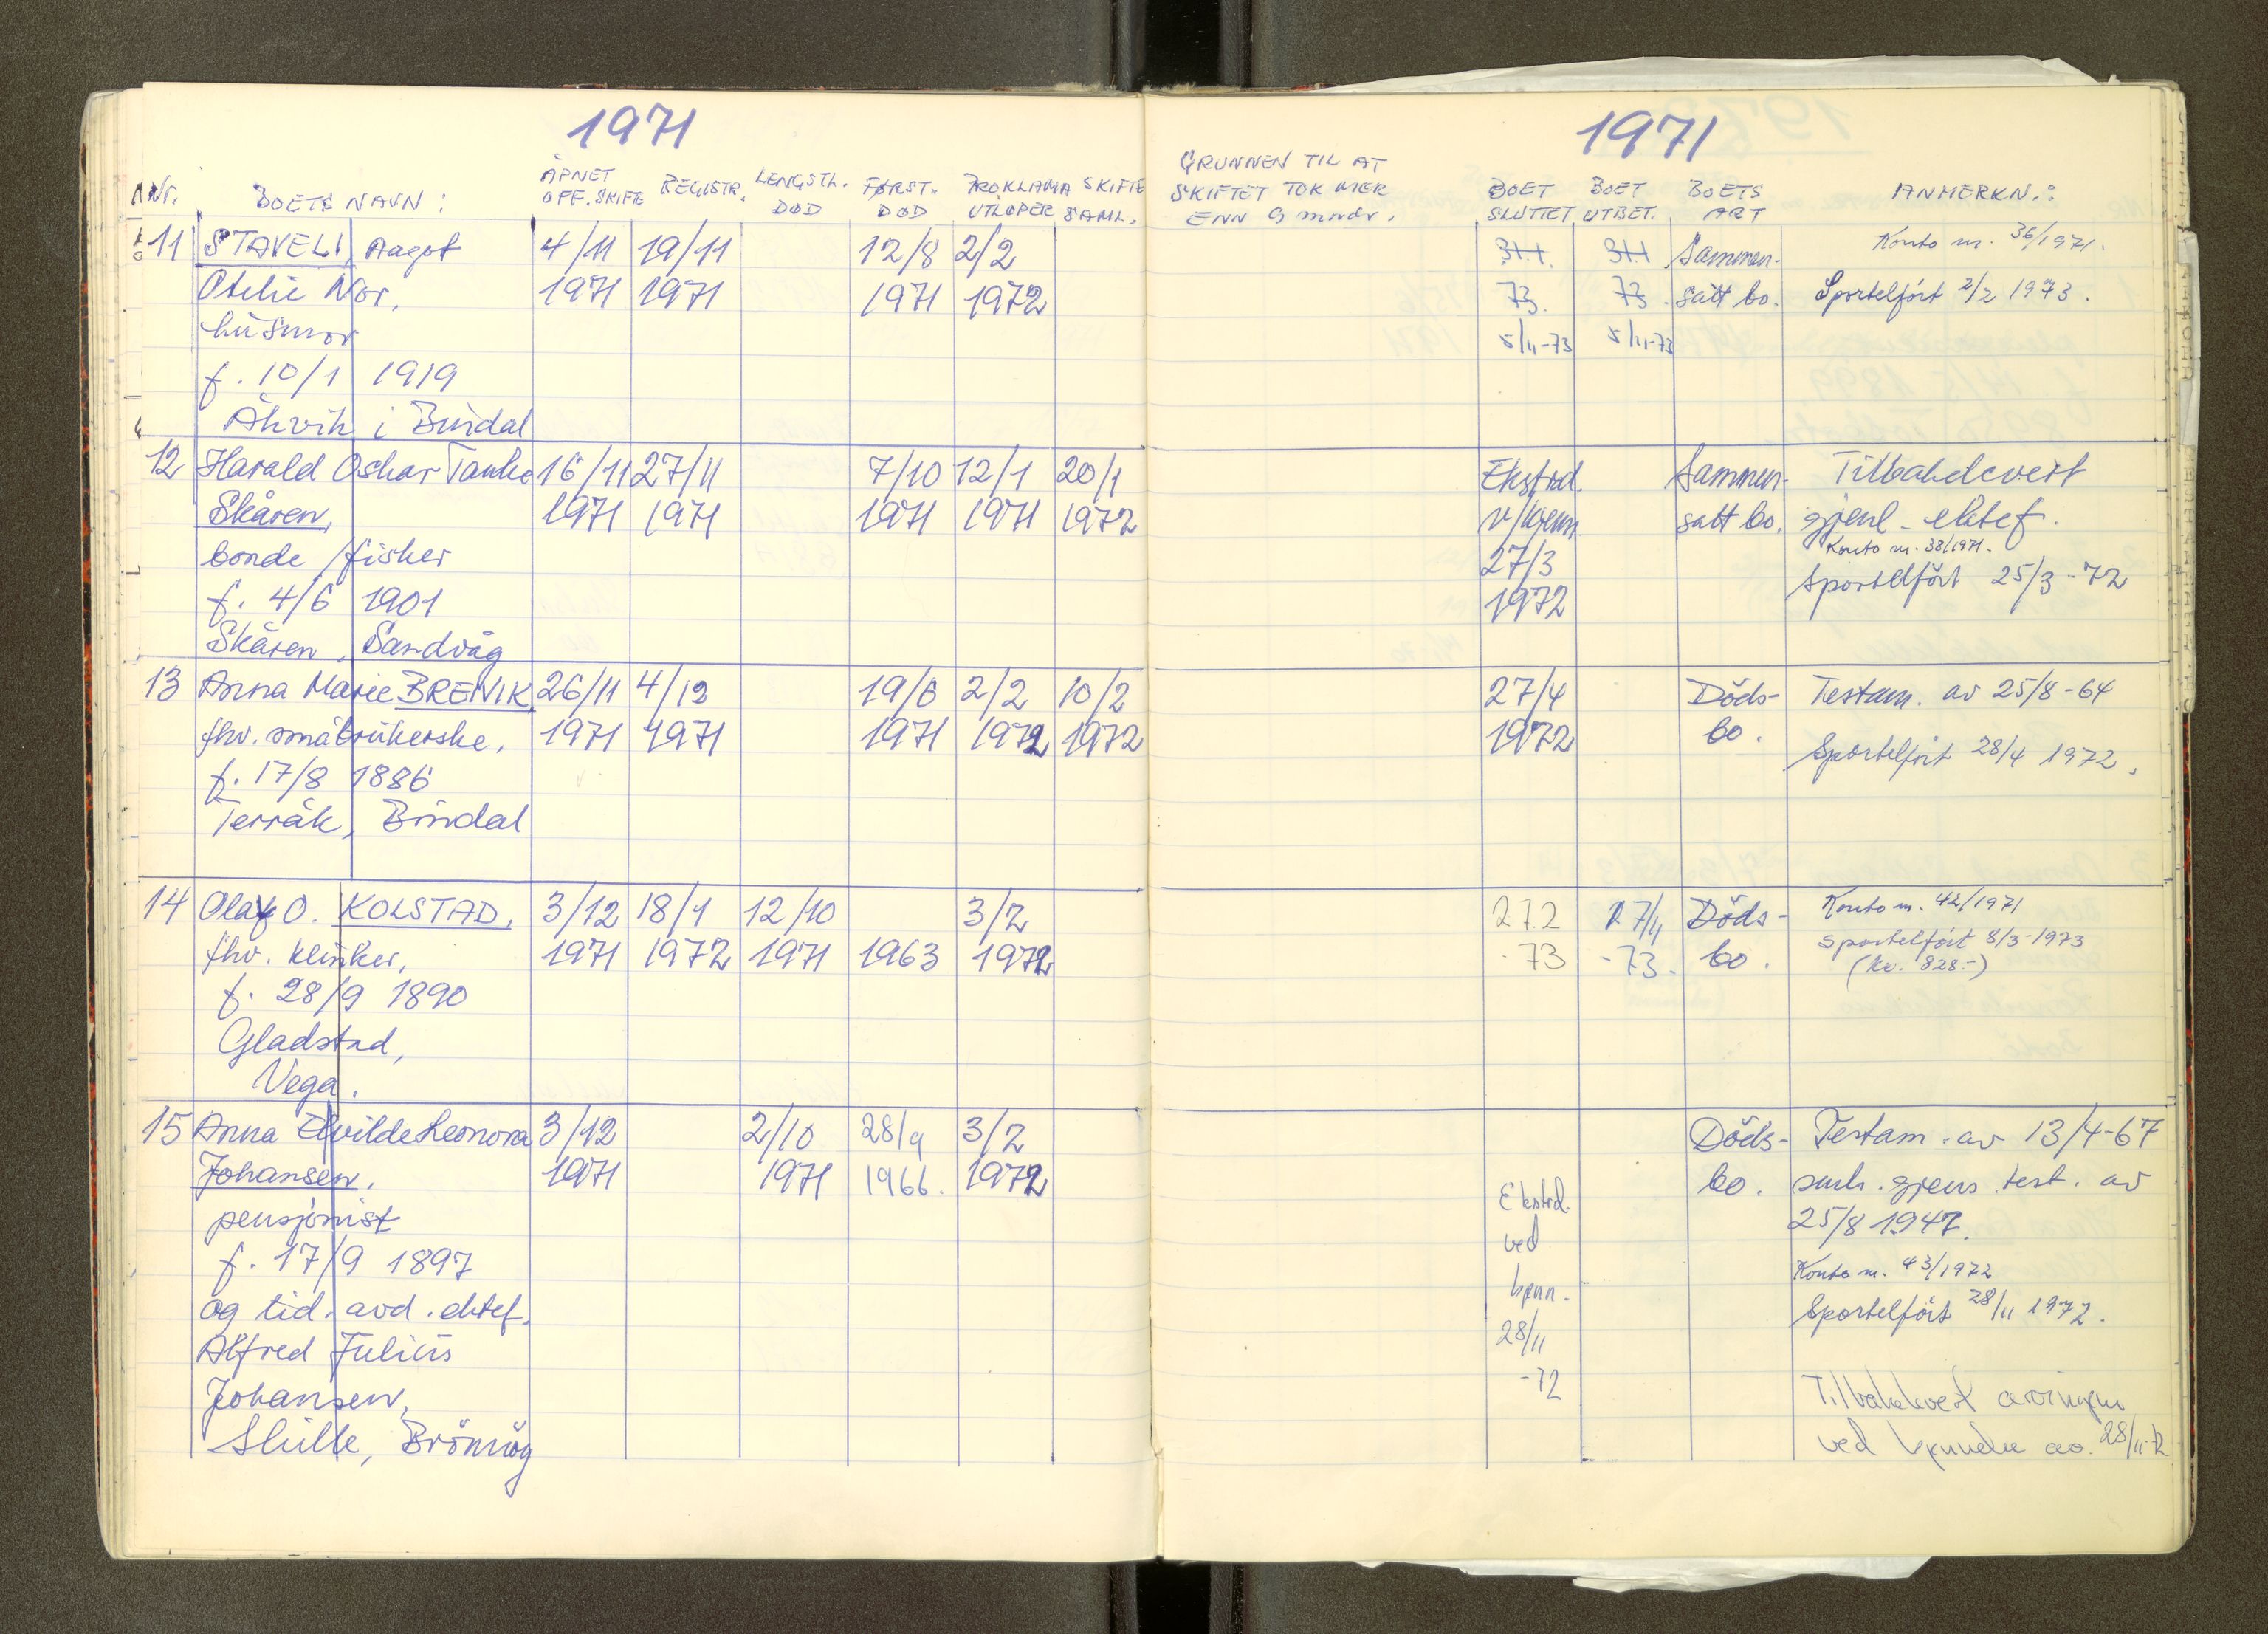 1971
Nr.
BOETS NAVN:
ÅPNET OFF. SKIFTE
REGISTR.
LENGSTL. DØD
FØRST. DØD
PROKLAMA UTLØPER
SKIFTE SAML.
11 STAVELI, Aagot 4/11 19/11 12/8 2/2
Otelie Nor, 1971 1971 1971 1972
husmor
f. 10/1 1919
Åkvik i Bindal
12 Harald Oskar 16/11 27/11 7/10 12/1 20/1
Skåren, 1971 1971 1971 1971 1972
bonde/fisker
f. 4/6 1901
Skåren, Sandvåg
13 Anna Marie BREIVIK 26/11 4/12 19/6 2/2 10/2
fhv. småbrukerske, 1971 1971 1971 1972 1972
f. 17/8 1886
Terråk, Bindal
14 Olaf O. KOLSTAD, 3/12 18/1 12/10 3/2
fhv. klinker, 1971 1972 1971 1963 1972
f. 28/9 1890
Gladstad,
Vega.
15 Anna Elvilde Leonora 3/12 2/10 28/9 3/2
Johansen, 1971 1971 1966. 1972
pensjonist
f. 17/9 1897
og tid. avd. ektef.
Alfred Julius
Johansen,
Skille, Brönnöy
1971
GRUNNEN TIL AT
SKIFTET TOK MER
ENN 9 mndr.
BOET SLUTTET
BOET UTBET.
BOETS ART
ANMERKN.:
Sammen- Konto nr. 36/1971.
73. 73. satt bo. Sportelfört 2/2 1973.
5/11-73 5/11-73
Ekstrd. Sammen- Tilbakelevert
v/kjenn. satt bo. gjenl. ektef.
27/3 Konto nr. 38/1971.
1972 Sportelfört 25/3-72
27/4 Döds- Testam. av 25/8-64
1972 bo. Sportelfört 28/4 1972.
27.2 27/4 Döds- Konto nr. 42/1971
-73 -73. bo. Sportelfört 8/3-1973
(kr. 828.-)
Döds- Testam. av 13/4-67
bo. smh. gjens. test. av
25/8 1947.
Ekstrd.
ved
kjenn.
28/11
-72
Konto nr. 43/1972
Sportelfört 28/11 1972.
Tilbakelevert arvingene
ved kjennelse av 28/11-72